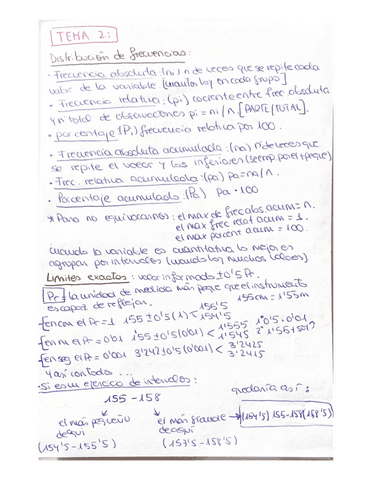 TEMA 2:
Distribución de frecuencias:
· Frecuencia absoluta: (ni) n de veces que se repite cada
valor de la variable (cuanto hay en cada grupo)
· Frecuencia relativa: (pi) cociente entre frec absoluta
y nº total de observaciones pi = ni/n. [PARTE/TOTAL].
· porcentaje (Pi) frecuencia relativa por 100.
· Frecuencia absoluta acumulada: (na) nº de veces que
se repite el valor y los inferiores
· Frec. relativa acumulada: (pa) pa = na/n.
· Porcentaje acumulado: (Pa) pa · 100
* Para no equivocarnos: el max de frec abs acum = n.
el max frec relat acum = 1.
el max porcent acum = 100.
cuando la variable es cuantitativa lo mejor es
agrupar por intervalos (cuando hay muchos valores)
Límites exactos: valor informado ± 0'5 A.
la unidad de medida más peque que el instrumento
es capaz de reflejar. 155cm = 1'55m
[en cm el A = 1 155 ± 0'5 (1) < 155'5 154'5
[en m el A = 0'01 1'55 ± 0'5 (0'01) < 1'555 1'545
[en seg el A = 0'001 3'242 ± 0'5 (0'001) < 3'2425 3'2415
Y así con todo...
· Si es un ejercicio de intervalos: quedaría así:
155 - 158
el más pequeño el más grande → (154'5) 155-158 (158'5)
de aquí de aquí
(154'5 - 155'5) (157'5 - 158'5)